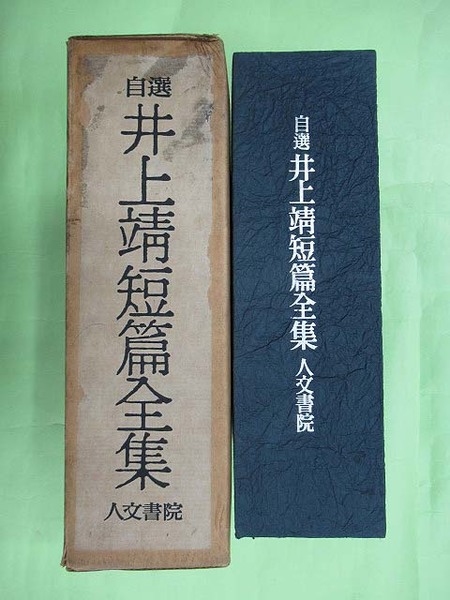 自選
井上靖短篇全集
人文書院
自選 井上靖短篇全集 人文書院